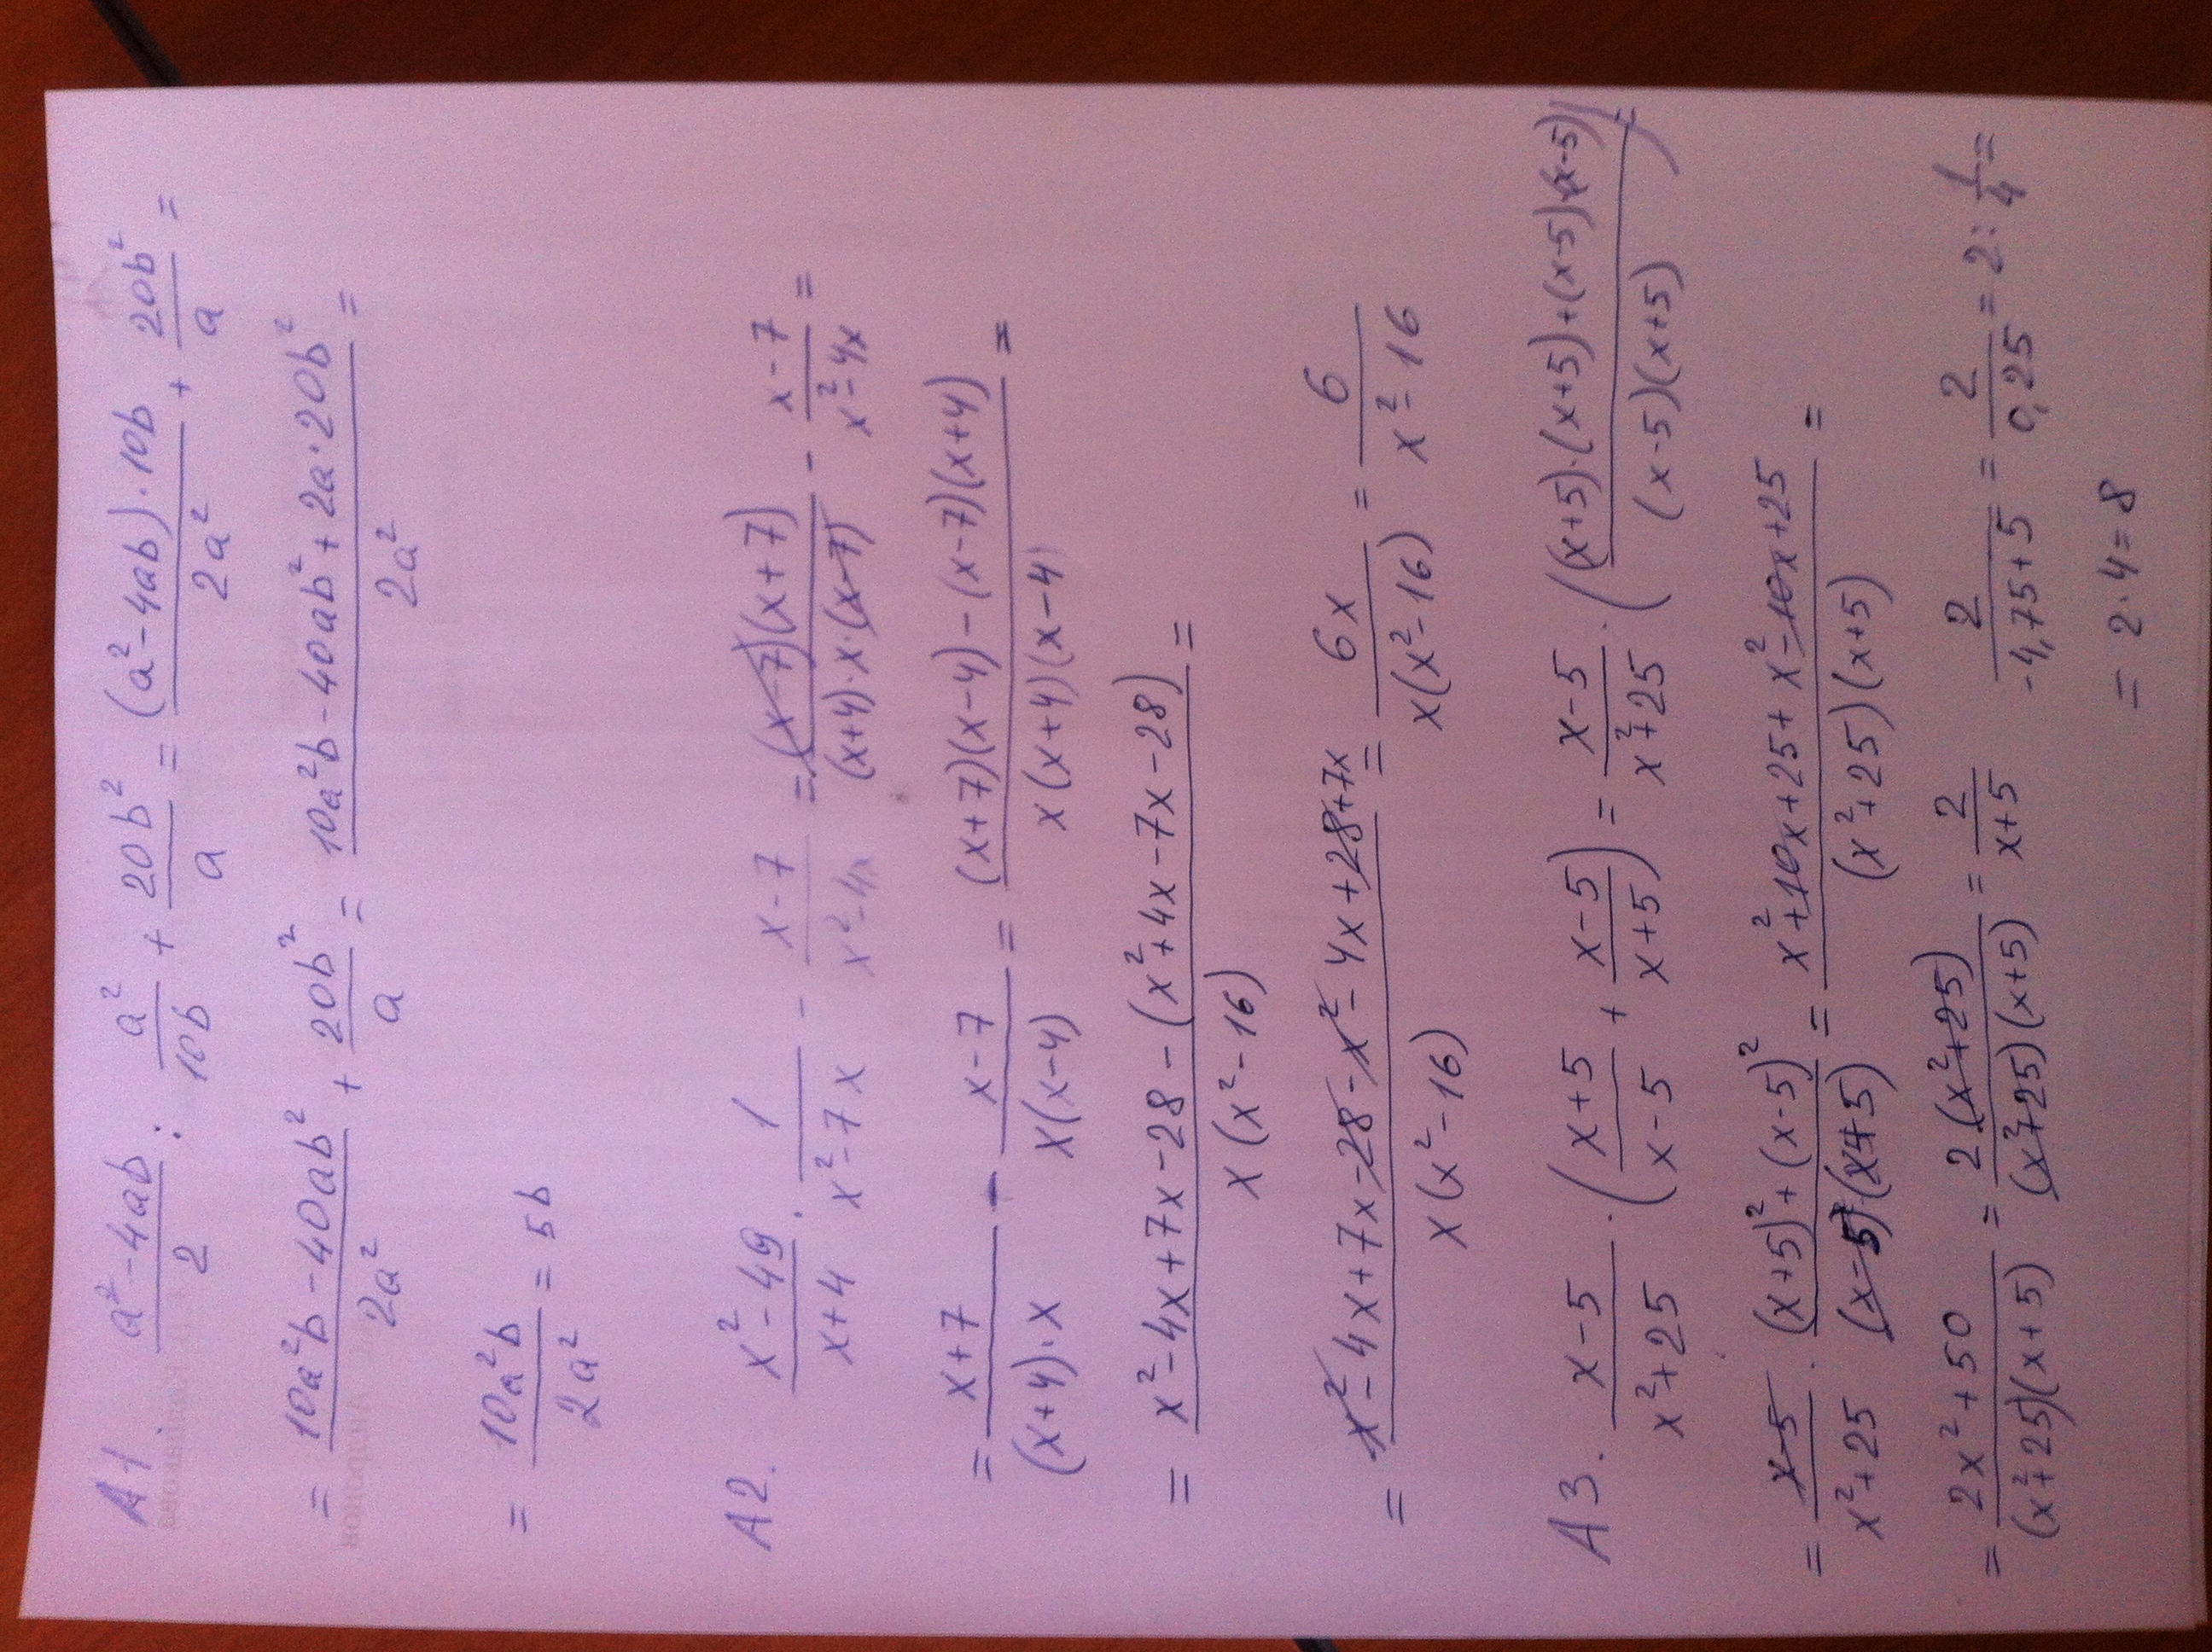 A1. (a² - 4ab)/2 : a²/(10b) + 20b²/a = ((a² - 4ab) · 10b)/(2a²) + 20b²/a =
= (10a²b - 40ab²)/(2a²) + 20b²/a = (10a²b - 40ab² + 2a · 20b²)/(2a²) =
= 10a²b/(2a²) = 5b
A2. (x² - 49)/(x+4) · 1/(x² - 7x) - (x-7)/(x² - 4x) = ((x-7)(x+7))/((x+4) · x · (x-7)) - (x-7)/(x² - 4x) =
= (x+7)/((x+4) · x) - (x-7)/(x(x-4)) = ((x+7)(x-4) - (x-7)(x+4))/(x(x+4)(x-4)) =
= (x² - 4x + 7x - 28 - (x² + 4x - 7x - 28))/(x(x² - 16)) =
= (x² - 4x + 7x - 28 - x² - 4x + 28 + 7x)/(x(x² - 16)) = 6x/(x(x² - 16)) = 6/(x² - 16)
A3. (x-5)/(x² + 25) · ((x+5)/(x-5) + (x-5)/(x+5)) = (x-5)/(x² + 25) · (((x+5) · (x+5) + (x-5)(x-5))/((x-5)(x+5))) =
= (x-5)/(x² + 25) · ((x+5)² + (x-5)²)/((x-5)(x+5)) = (x² + 10x + 25 + x² - 10x + 25)/((x² + 25)(x+5)) =
= (2x² + 50)/((x² + 25)(x+5)) = 2(x² + 25)/((x² + 25)(x+5)) = 2/(x+5) 2/(-4,75 + 5) = 2/0,25 = 2 : 1/4 =
= 2 · 4 = 8